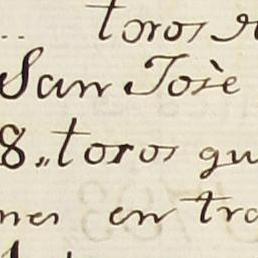 toros
San Josè
8,, toros qu
nes en tra